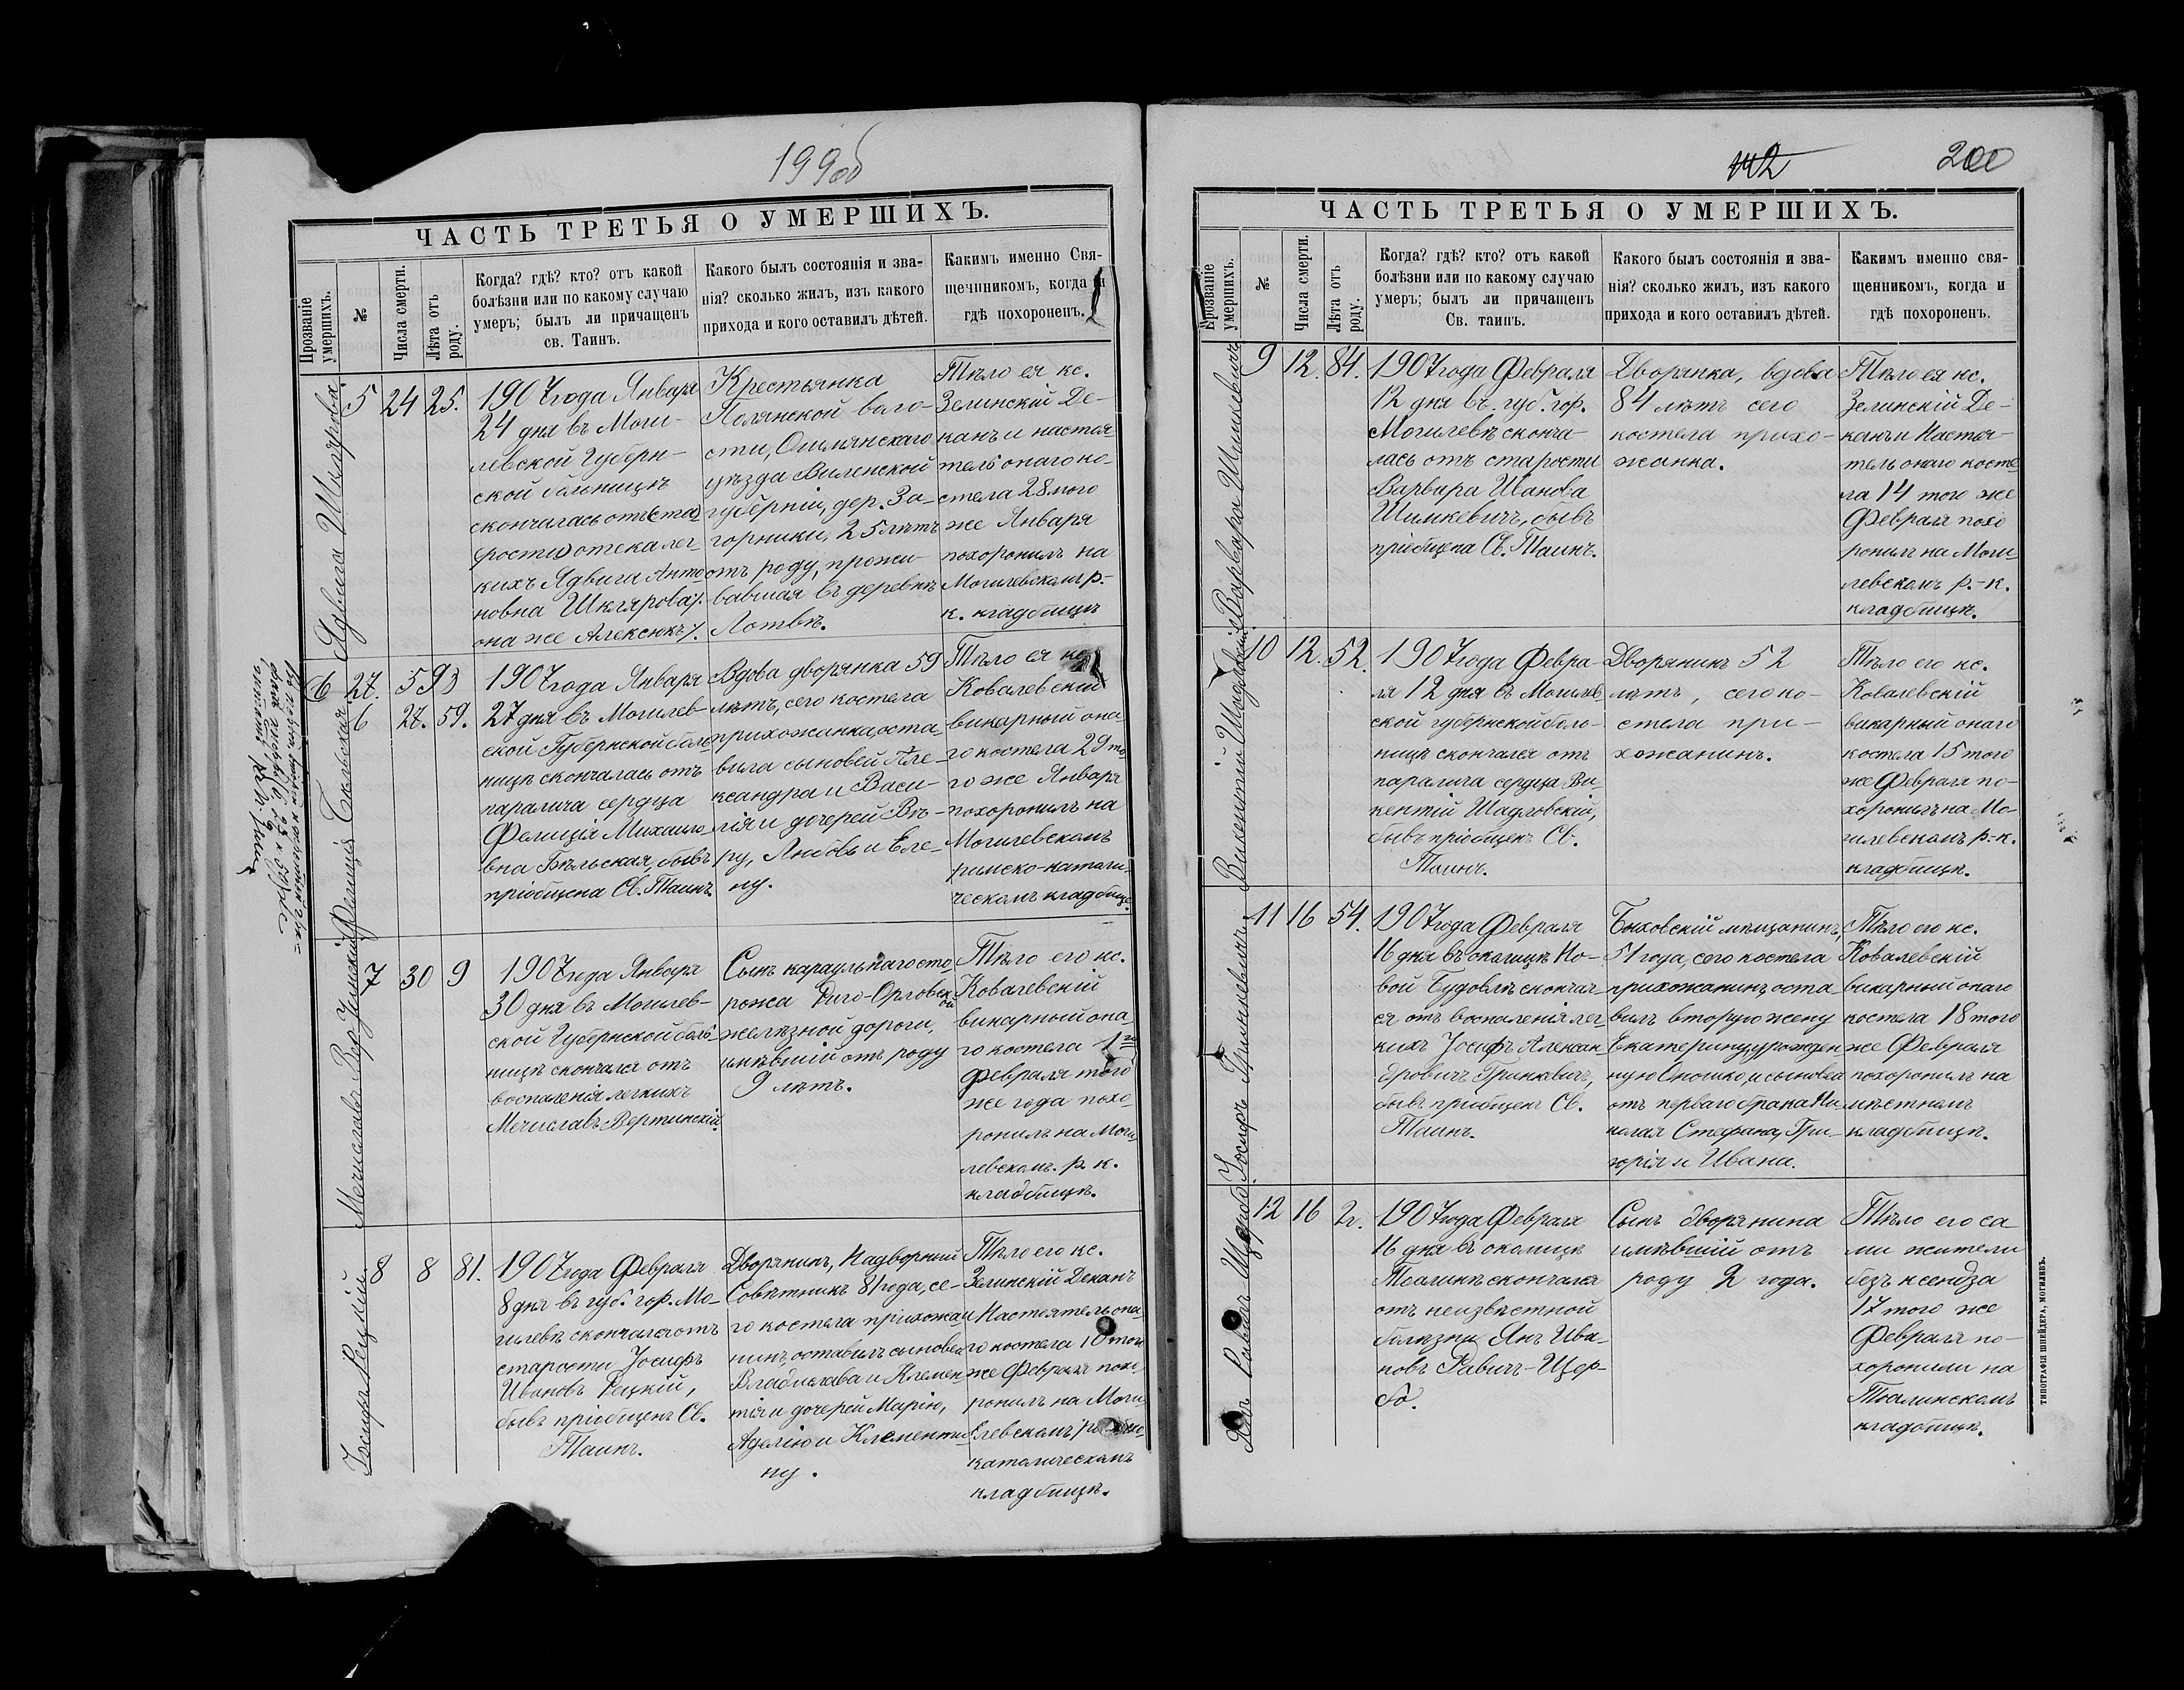 199об
ЧАСТЬ ТРЕТЬЯ О УМЕРШИХЪ.
Прозваніе умершихъ.
№
Числа смерти.
Лѣта отъ роду.
Когда? гдѣ? кто? отъ какой
болѣзни или по какому случаю
умеръ; былъ ли причащенъ
св. Таинъ.
Какого былъ состоянія и зва-
нія? сколько жилъ, изъ какого
прихода и кого оставилъ дѣтей.
Какимъ именно Свя-
щенникомъ, когда и
гдѣ похороненъ.
Ядвига Шклярова
5
24
25.
1907 года Января
24 дня въ Моги-
левской Губерн-
ской больницѣ
скончалась отъ ста
рости отека лег-
кихъ Ядвига Анто
новна Шклярова /.
она же Алексюкъ /.
Крестьянка
Полянской воло-
сти, Ошмянскаго
уѣзда Виленской
губерніи, дер. За-
горники, 25 лѣтъ
отъ роду, прожи-
вавшая въ деревнѣ
Лотвѣ.
Тѣло ея кс.
Зелинскій Де-
канъ и настоя-
тель онаго ко-
стела 28 того
же Января
похоронилъ на
Могилевскомъ р.-
к. кладбищѣ
Фелиція Бѣльская
6 27. 593
6
27.
59.
1907 года Января
27 дня въ Могилев-
ской Губернской боль
ницѣ скончалась отъ
паралича сердца
Фелиція Михайло-
вна Бѣльская, бывъ
пріобщена Св. Таинъ.
Вдова дворянка 59
лѣтъ, сего костела
прихожанка, оста-
вила сыновей Але-
ксандра и Васи-
лія и дочерей Вѣ-
ру, Любовь и Еле-
ну.
Тѣло ея кс.
Ковалевскій
викарный она
го костела 29 то
го же Января
похоронилъ на
Могилевскомъ
римско-католи-
ческомъ кладбище.
Мечиславъ Вертинскій
7
30
9
1907 года Января
30 дня въ Могилев-
ской Губернской боль-
ницѣ скончался отъ
воспаленія легкихъ
Мечиславъ Вертинскій.
Сынъ караульнаго сто
рожа Риго-Орловской
желѣзной дороги,
имѣвшій отъ роду
9 лѣтъ.
Тѣло его кс.
Ковалевскій
викарный она-
го костела 1го
Февраля того
же года похо-
ронилъ на Моги
левскомъ. р. к.
кладбищѣ.
Іосифъ Рецкій
8
8
81.
1907 года Февраля
8 дня въ губ. гор. Мо-
гилевѣ скончался отъ
старости Іосифъ
Ивановъ Рецкій,
бывъ пріобщенъ Св.
Таинъ.
Дворянинъ, Надворный
Совѣтникъ 81 года, се-
го костела прихожа
нинъ, оставилъ сыновей
Владислава и Клемен-
тія и дочерей Марію,
Аделію и Клементи-
ну.
Тѣло его кс.
Зелинскій Деканъ
и Настоятель она-
го костела 10 того
же Февраля похо-
ронилъ на Моги-
левскомъ
католическомъ
кладбищѣ.
142
200
ЧАСТЬ ТРЕТЬЯ О УМЕРШИХЪ.
Прозваніе умершихъ.
№
Числа смерти.
Лѣта отъ роду.
Когда? гдѣ? кто? отъ какой
болѣзни или по какому случаю
умеръ; былъ ли причащенъ
Св. таинъ.
Какого былъ состоянія и зва-
нія? сколько жилъ, изъ какого
прихода и кого оставилъ дѣтей.
Какимъ именно свя-
щенникомъ, когда и
гдѣ похороненъ.
Варвара Шимкевичъ
9
12.
84.
1907 года Февраля
12 дня въ губ. гор.
Могилевѣ сконча-
лась отъ старости
Варвара Иванова
Шимкевичъ, бывъ
пріобщена Св. Таинъ.
Дворянка, вдова
84 лѣтъ сего
костела прихо-
жанка.
Тѣло ея кс.
Зелинскій Де-
канъ и Настоя-
тель онаго косте
ла 14 того же
Февраля похо
ронилъ на Моги
левскомъ р.-к.
кладбищѣ.
Викентій Шадловскій
10
12.
52.
1907 года Февра
ля 12 дня въ Могилев
ской губернской боль-
ницѣ скончался отъ
паралича сердца Ви-
кентій Шадловскій,
бывъ пріобщенъ Св.
Таинъ.
Дворянинъ 52
лѣтъ, сего ко-
стела при-
хожанинъ.
Тѣло его кс.
Ковалевскій
викарный онаго
костела 15 того
же Февраля по-
хоронилъ на Мо-
гилевскомъ р.-к.
кладбищѣ.
Іосифъ Гринкевичъ
11
16
54.
1907 года Февраля
16 дня въ околицѣ Но-
вой Будовлѣ скончал-
ся отъ воспаленія лег-
кихъ Іосифъ Алексан-
дровичъ Гринкевичъ,
бывъ пріобщенъ Св.
Таинъ.
Быховскій мѣщанинъ,
51 года, сего костела
прихожанинъ, оста-
вилъ вторую жену
Екатерину, урожден
ную Оношко, и сыновей
отъ перваго брака Ни-
колая Стефана, Гри-
горія и Ивана.
Тѣло его кс.
Ковалевскій
викарный онаго
костела 18 того
же Февраля
похоронилъ на
мѣстномъ
кладбищѣ.
Янъ Равичъ-Щерба
12
16
2г.
1907 года Февраля
16 дня въ околицѣ
Тоалинѣ скончался
отъ неизвѣстной
болѣзни Янъ Ива-
новъ Равичъ-Щер-
ба.
Сынъ дворянина
имѣвшій отъ
роду 2 года.
Тѣло его са
ми жители
безъ ксендза
17 того же
Февраля по-
хоронили на
Тоалинскомъ
кладбищѣ.
ТИПОГРАФІЯ ШНЕЙДЕРА, МОГИЛЕВЪ.